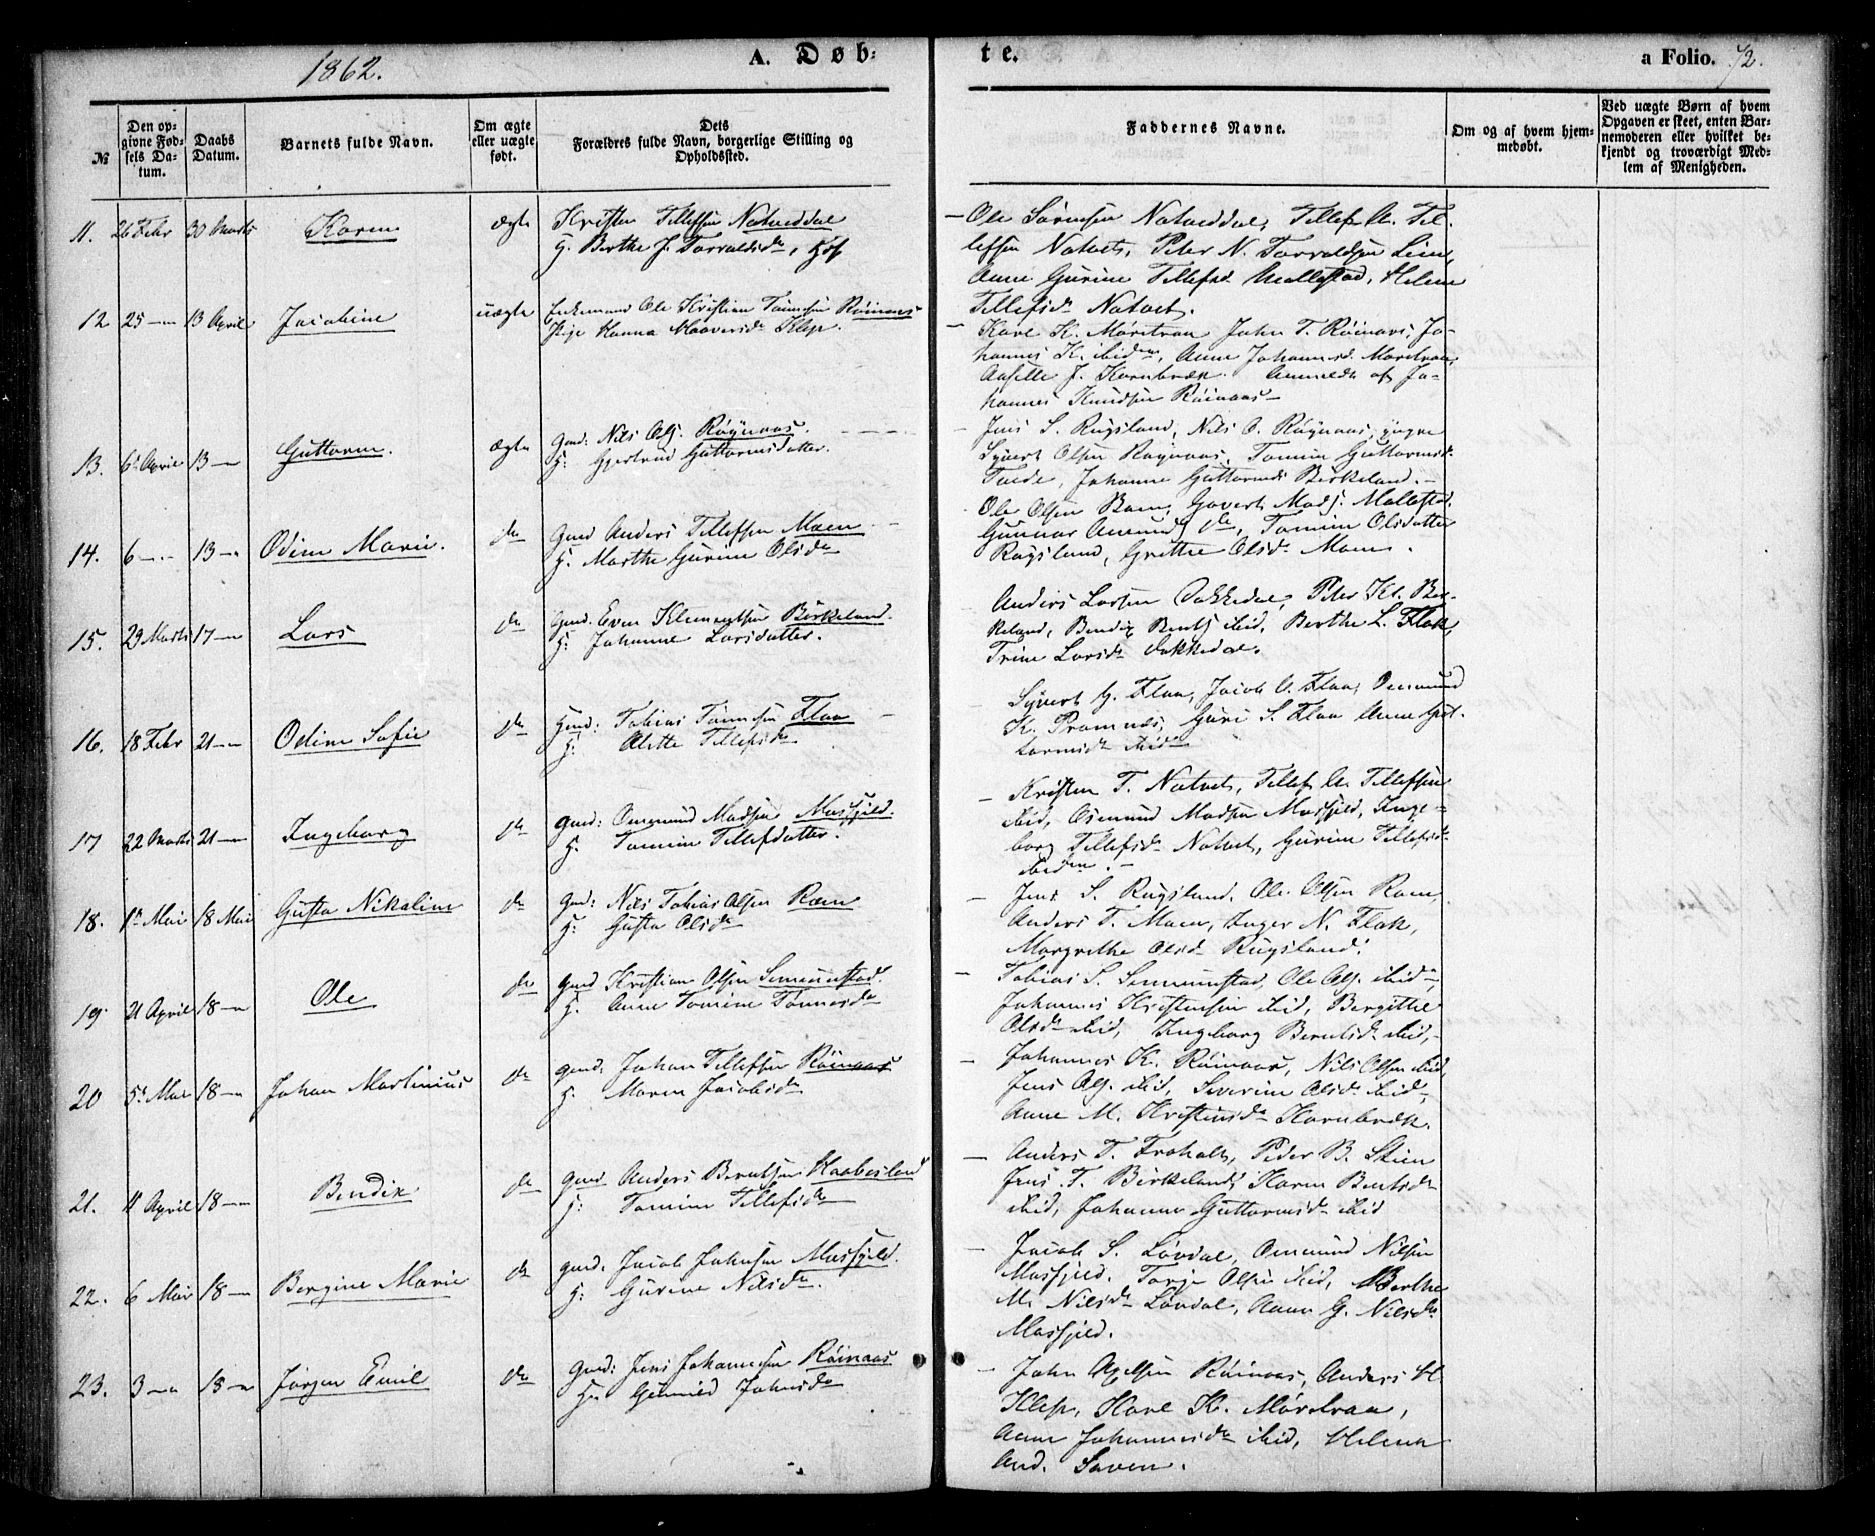 1862.
A. Døb-
te.
a Folio. 72.
№
Den op-
givne Fød-
sels Da-
tum.
Daabs
Datum.
Barnets fulde Navn.
Om ægte
eller uægte
født.
Dets
Forældres fulde Navn, borgerlige Stilling og
Opholdssted.
Faddernes Navne.
Om og af hvem hjem-
medøbt.
Ved uægte Børn af hvem
Opgaven er skeet, enten Bar-
nemoderen eller hvilket be-
kjendt og troværdigt Med-
lem af Menigheden.
11. 26 Febr 30 Marts Karen ægte Kristen Tellefsen Natveddal
H. Berthe J. Torvaldsdr,
Ole Sørensen Natveddal, Tellef A. Tel-
lefsen Natvet, Peter N. Torvaldsen Lien,
Anne Gurine Tellefsd. Mollestad, Helene
Tellefsdr Natvet.
12 25 — 13 April Jacobine uægte Enkemand Ole Kristian Tønnesen Röinaas
Pige Hanna Haaversdr Klep.
Karl K. Møretraa John T. Röinaas, Jo-
hannes K. ibidm, Anne Johannesd. Møretraa,
Aaselle J. Kornbrek. Anmeldt af Jo-
hannes Knudsen Röinaas —
13. 6te April 13 — Guttorm. ægte Gmd. Nils Ols. Röynaas.
H: Gjertrud Guttormsdatter.
Jens S. Rugsland, Nils O. Röynaas, yngre
Syvert Olsen Röynaas, Tomine Guttormsdr
Tvede, Johanne Guttormsdr Birkeland. —
14. 6 — 13 — Odine Marie. do Gmd Anders Tellefsen Moen
H. Marthe Gurine Olsdr
Ole Olsen Ram, Govert Mads. Mollestad.
Gunnar Aanunds do, Tomine Olsdatter
Rugsland, Grethe Olsdr Moen.
15. 29 Marts 17 — Lars do Gmd. Even Klementsen Birkeland.
H: Johanne Larsdatter.
Anders Larsen Vakkedal, Peter Kl. Bir-
keland, Bendix Bents. ibid, Berthe L. Flak,
Trine Larsdr Vakkedal.
16. 18 Febr 21 — Odine Sofie do Gmd: Tobias Tønnesen Flaa
H: Alette Tellefsdr
Syvert G. Flaa, Jacob O. Flaa, Ommund
K. Pramnes, Guri S. Flaa Anne Gut-
tormsdr ibidm
17 22 Marts 21 — Ingeborg do Gmd: Ommund Madsen Mosfjeld.
H. Tomine Tellefsdatter.
Kristen T. Natvet, Tellef A. Tellefsen
ibid, Osmund Madsen Mosfjeld, Inge-
borg Tellefsdr Natvet, Gurine Tellefsdr
ibidm. —
18. 1te Mai 18 Mai Gusta Nikoline do Gmd: Nils Tobias Olsen Ræm
H: Gusta Olsdr
Jens S. Rugsland, Ole Olsen Ram,
Anders T. Moen, Inger N. Flak,
Margrethe Olsdr Rugsland.
19. 21 April 18 — Ole do Gmd Kristian Olsen Semmunstad.
H. Anne Tomine Tønnesdr
Tobias S. Semmunstad, Ole Ols. ibidm,
Johannes Kristensen ibid, Bergithe
Olsdr ibid, Ingeborg Berntsdr ibid, —
20 5te Mai 18 — Johan Martinius do Gmd. Johan Tellefsen Röinaas
H. Maren Jacobsdr
Johannes K. Röinaas, Nils Olsen ibid,
Jens Ols. ibid, Severine Olsdr ibid,
Anne M. Kristensdr Kornbrek.
21. 11 April 18 — Bendix do Gmd Anders Berntsen Haabesland
H: Tomine Tellefsdr
Anders T. Froholt, Peder B. Stien
Jens T. Birkeland, Karen Bentsdr
ibid, Johanne Guttormsdr ibid
22. 6 Mai 18 — Bergine Marie do Gmd. Jacob Johnsen Mosfjeld.
H: Gurine Nilsdr.
Jacob S. Løvdal, Ommund Nilsen
Mosfjeld. Torje Olsen ibid, Berthe
M. Nilsdr Løvdal, Anne G. Nilsdr
Mosfjeld.
23. 3 — 18 — Jørgen Emil do Gmd: Jens Johannesen Röinaas
H: Gunnild Johnsdr
John Axelsen Röinaas, Anders H.
Klep, Karl K. Møretraa,
Anne Johannesdr ibid, Helene
And. Saven.